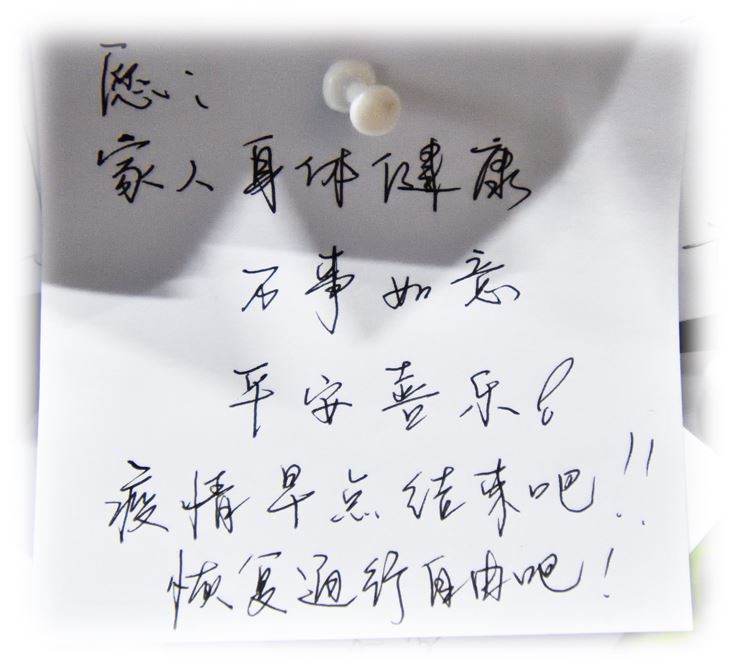 愿：
家人身体健康
万事如意
平安喜乐！
疫情早点结束吧！！
恢复通行自由吧！